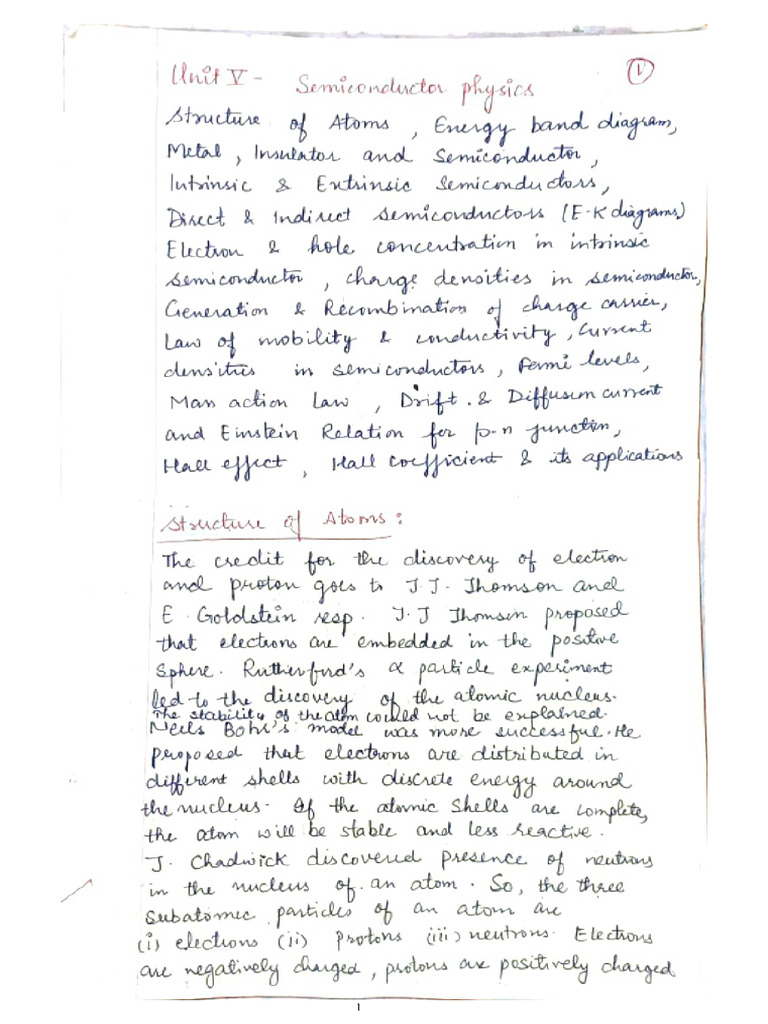 Unit V - Semiconductor physics
1
Structure of Atoms, Energy band diagram,
Metal, Insulator and Semiconductor,
Intrinsic & Extrinsic Semiconductors,
Direct & Indirect semiconductors (E-K diagrams)
Electron & hole concentration in intrinsic
semiconductor, charge densities in semiconductor,
Generation & Recombination of charge carrier,
Law of mobility & conductivity, Current
densities in semiconductors, Fermi levels,
Mass action Law, Drift & Diffusion current
and Einstein Relation for p-n junction,
Hall effect, Hall coefficient & its applications
Structure of Atoms:
The credit for the discovery of electron
and proton goes to J.J. Thomson and
E. Goldstein resp. J.J Thomson proposed
that electrons are embedded in the positive
sphere. Rutherford's α particle experiment
led to the discovery of the atomic nucleus.
The stability of the atom could not be explained.
Neils Bohr's model was more successful. He
proposed that electrons are distributed in
different shells with discrete energy around
the nucleus. If the atomic shells are complete,
the atom will be stable and less reactive.
J. Chadwick discovered presence of neutrons
in the nucleus of an atom. So, the three
Subatomic particles of an atom are
(i) electrons (ii) Protons (iii) neutrons. Electrons
are negatively charged, protons are positively charged
1